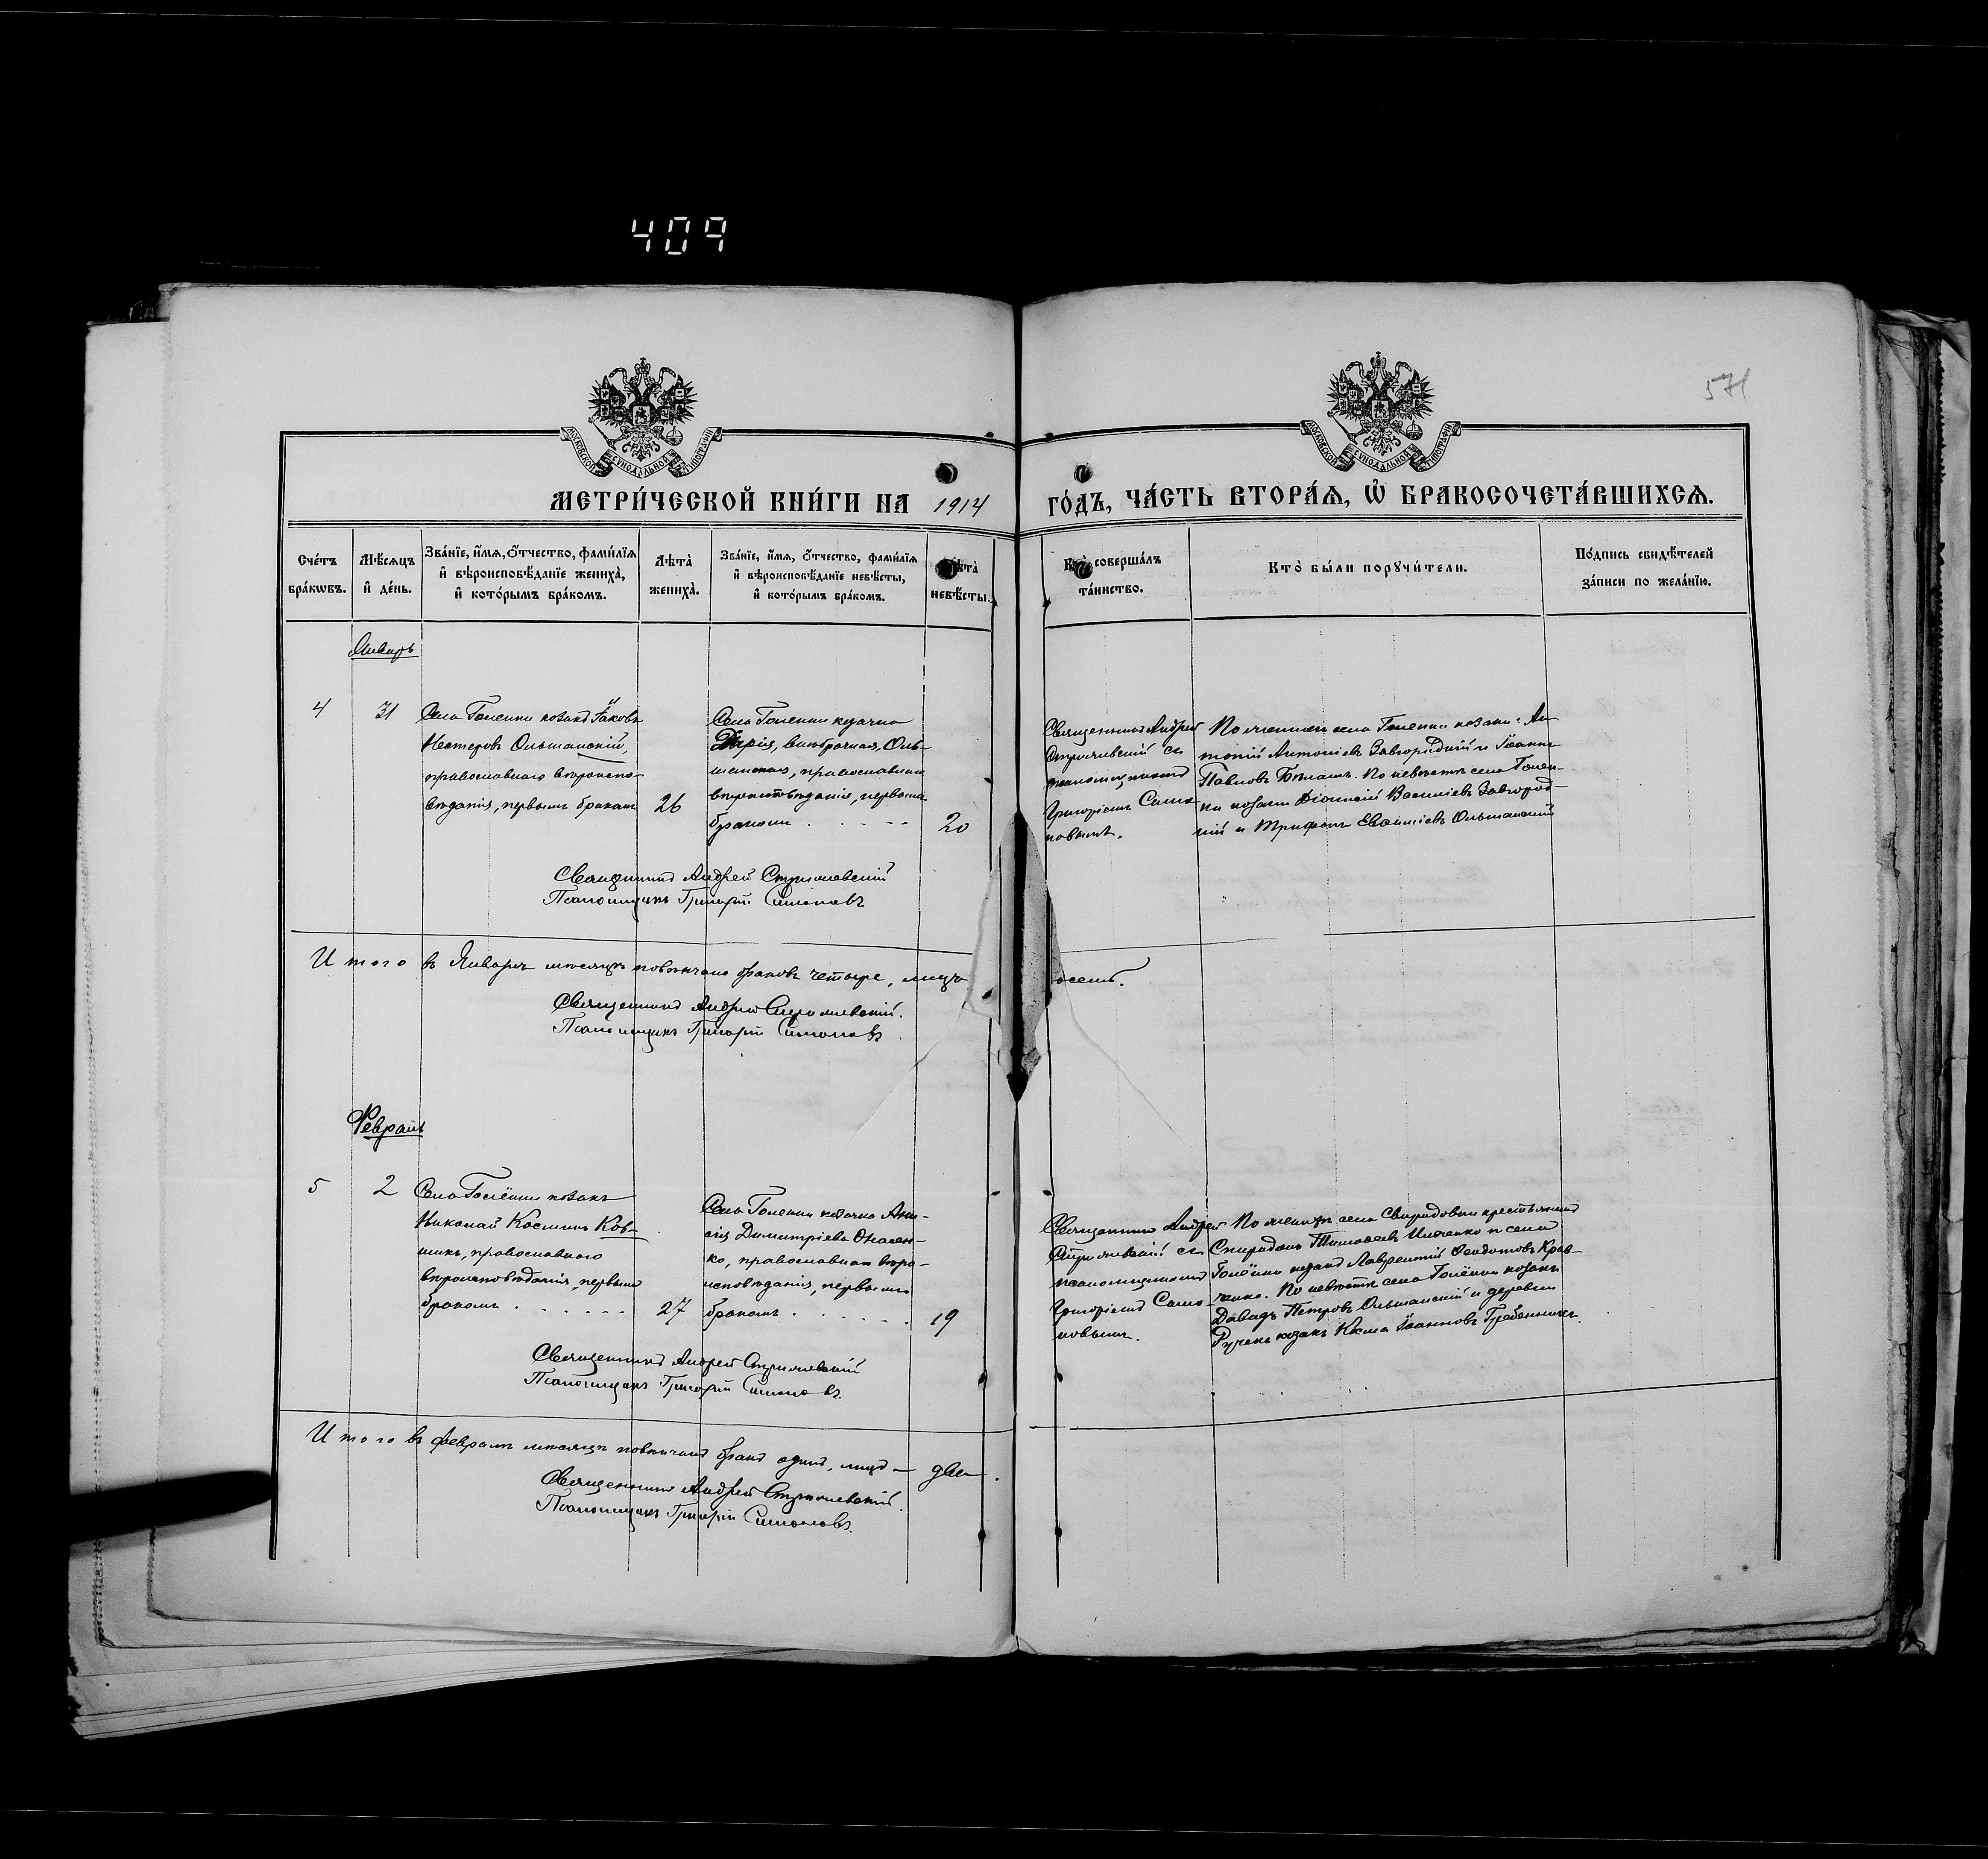 409
571
МОСКОВСКОЙ СѴНОДАЛЬНОЙ ТИПОГРАФІИ
МОСКОВСКОЙ СѴНОДАЛЬНОЙ ТИПОГРАФІИ
МЕТРИ́ЧЕСКОЙ КНИ́ГИ НА 1914 ГО́ДЪ, ЧА́СТЬ ВТОРА́Я, Ѡ҆ БРАКОСОЧЕТА́ВШИХСЯ.
Сче́тъ
бра́кѡвъ.
Мѣ́сяцъ
и҆ де́нь.
Зва́нїе, и҆́мя, ѻ҆́тчество, фами́лїя
и҆ вѣроисповѣ́данїе жениха̀,
и҆ кото́рымъ бра́комъ.
Лѣта̀
жениха̀.
Зва́нїе, и҆́мя, ѻ҆́тчество, фами́лїя
и҆ вѣроисповѣ́данїе невѣ́сты,
и҆ кото́рымъ бра́комъ.
невѣ́сты.
соверша́лъ
та́инство.
Кто̀ бы́ли порꙋчи́тели.
По́дпись свидѣ́телей
за́писи по жела́нїю.
Январь
4
31
Села Голенки козакъ Іаковъ
Несторовъ Ольшанскій,
православнаго вѣроиспо-
вѣданія, первымъ бракомъ
26
Села Голенки козачка
Дарія, внѣбрачная, Оль-
шанская, православнаго
вѣроисповѣданія, первымъ
бракомъ
20
Священникъ Андрей
съ
псаломщикомъ
Григоріемъ Симо-
новымъ.
По женихѣ села Голенки козаки: Ан-
тоній Антоніевъ Завгородній и Іоаннъ
Павловъ По невѣстѣ села Голен-
ки козаки Діонисій Василіевъ Завгород-
ній и Трифонъ Ольшанскій
Священникъ Андрей
Псаломщикъ Григорій Симоновъ
Итого въ Январѣ мѣсяцѣ повѣнчано браковъ четыре, лицъ осемь.
Священникъ Андрей
Псаломщикъ Григорій Симоновъ
Февраль
5
2
Села Голёнки козакъ
Николай Косминъ Ков-
шикъ, православнаго
вѣроисповѣданія, первымъ
бракомъ
27
Села Голенки козачка
Димитріева
ко, православнаго вѣро-
исповѣданія, первымъ
бракомъ
19
Священникъ Андрей
съ
псаломщикомъ
Григоріемъ Симо-
новымъ.
По женихѣ села Свиридовки крестьянинъ
Спиридонъ Тимоѳеевъ Ильченко и села
Голёнки козакъ Лаврентій Ѳеодотовъ Крав-
ченко. По невѣстѣ села Голёнки козакъ
Давидъ Петровъ Ольшанскій и деревни
козакъ Косма Іоанновъ Гребенникъ.
Священникъ Андрей
Псаломщикъ Григорій Симоновъ.
Итого въ февралѣ мѣсяцѣ повѣнчанъ бракъ одинъ, лицъ — два.
Священникъ Андрей
Псаломщикъ Григорій Симоновъ.